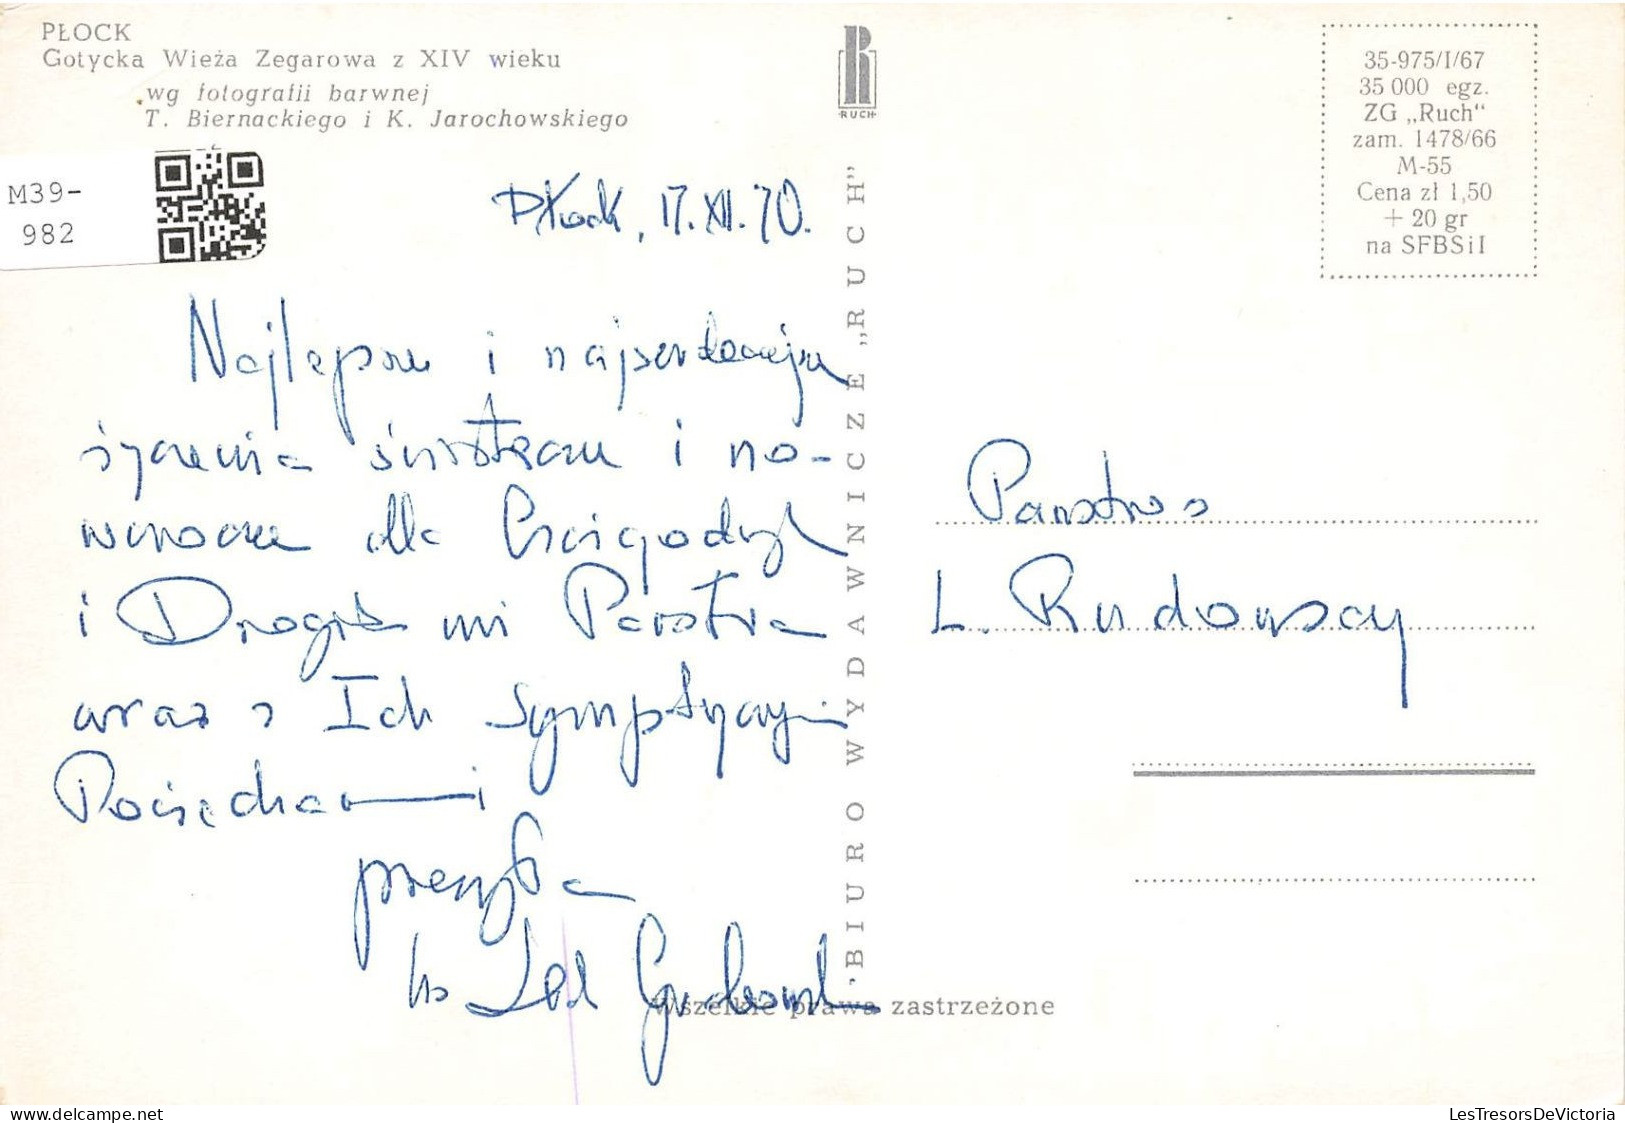 PŁOCK
Gotycka Wieża Zegarowa z XIV wieku
wg fotografii barwnej
T. Biernackiego i K. Jarochowskiego
M39-
982
RUCH
35-975/I/67
35 000 egz.
ZG „Ruch“
zam. 1478/66
M-55
Cena zł 1,50
+ 20 gr
na SFBSiI
Płock, 17.XII.70.
Najlepsze i najserdeczniejsze
życzenia świąteczne i no-
woroczne dla Czcigodnych
i Drogich mi Państwa
wraz z Ich sympatycznymi
Pociechami
przesyła
ks
Państwo
L. Rudowscy
BIURO WYDAWNICZE „RUCH”
Wszelkie prawa zastrzeżone
LesTresorsDeVictoria